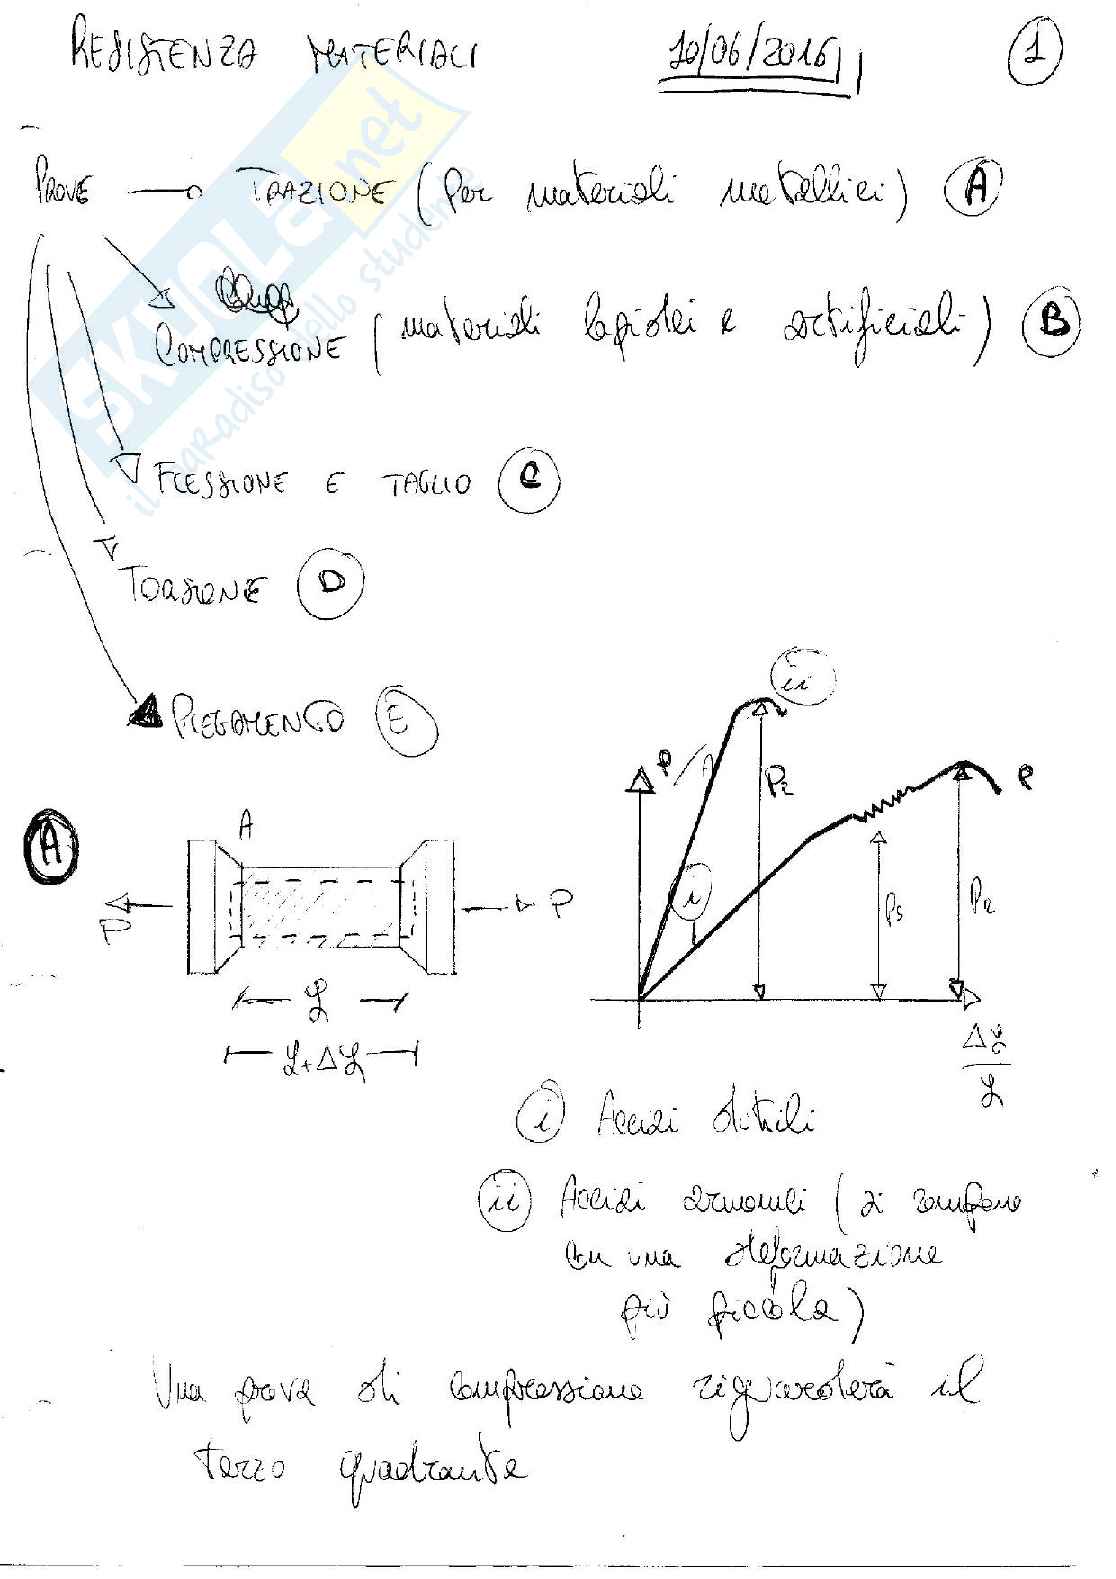 RESISTENZA MATERIALI 10/06/2016 1
PROVE TRAZIONE (Per materiali metallici) A
COMPRESSIONE (materiali lapidei e artificiali) B
FLESSIONE E TAGLIO C
TORSIONE D
PIEGAMENTO E
SKUOLA.net
il paradiso dello studente
ii
P/A
PR
P
A
A
i
P
P
PS
PR
L
L+ΔL
ΔL
L
i Acciai duttili
ii Acciai armonici (si rompono
con una deformazione
più piccola)
Una prova di compressione riguarderà il
terzo quadrante